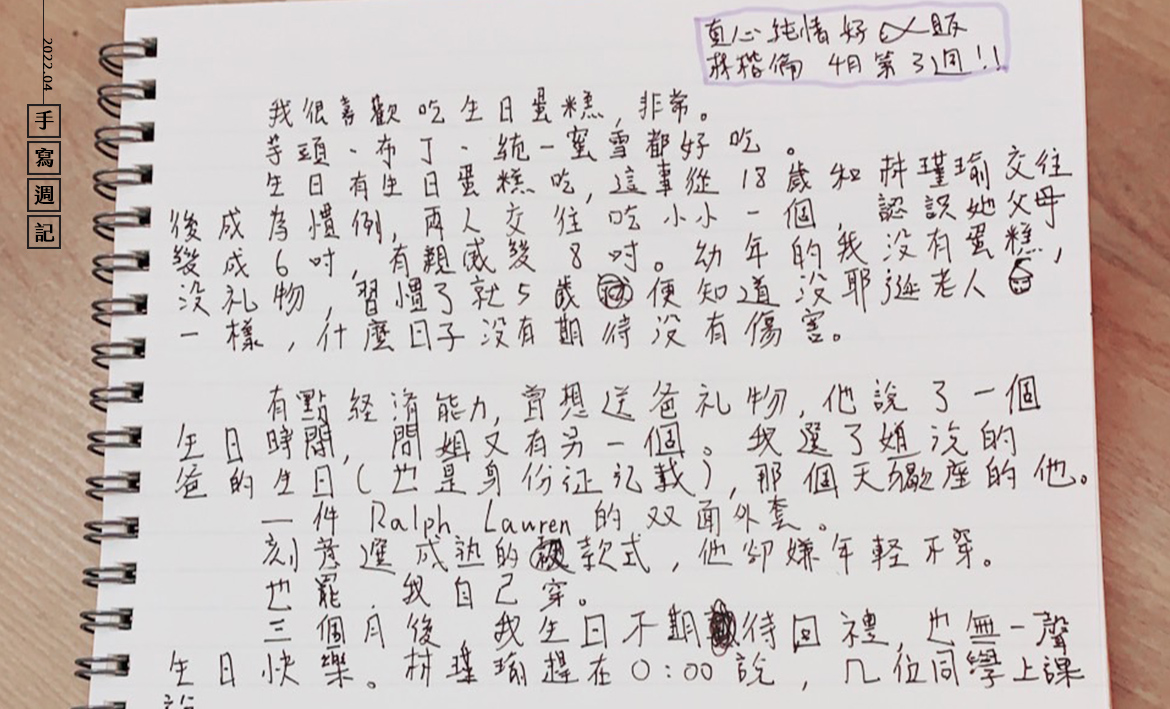 2022.04
手寫週記
真心純情好メ販
林楷倫 4月第3週!!
我很喜歡吃生日蛋糕,非常。
芋頭、布丁、統一蜜雪都好吃。
生日有生日蛋糕吃,這事從18歲和林瑾瑜交往
後成為慣例,兩人交往吃小小一個,認識她父母
變成6吋,有親戚變8吋。幼年的我没有蛋糕,
没礼物,習慣了就5歲便知道没耶誕老人
一樣,什麼日子没有期待没有傷害。
有點経濟能力,曾想送爸礼物,他說了一個
生日時間,問姐又有另一個。我選了姐說的
爸的生日(也是身份证記載),那個天蠍座的他。
一件 Ralph Lauren 的双面外套。
刻意選成熟的款式,他卻嫌年軽不穿。
也罷,我自己穿。
三個月後,我生日不期待回禮,也無一聲
生日快樂。林瑾瑜趕在0:00說,几位同學上課